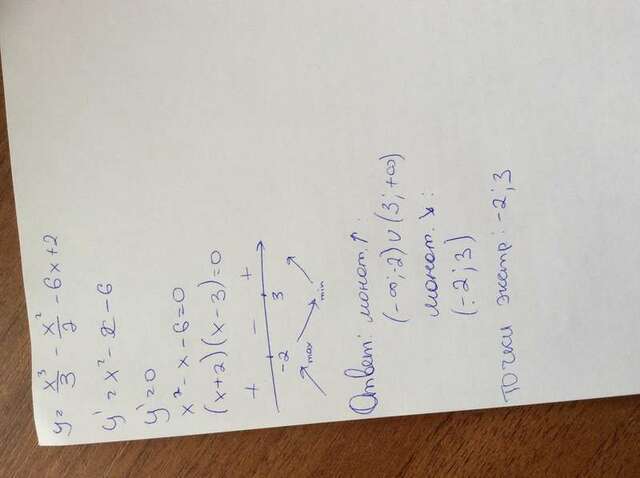 y = x³/3 - x²/2 - 6x + 2
y' = x² - x - 6
y' = 0
x² - x - 6 = 0
(x+2)(x-3) = 0
+ − +
-2 3
max min
Ответ: монот. ↑:
(-∞; -2) ∪ (3; +∞)
монот. ↘:
(-2; 3)
точки экстр: -2; 3